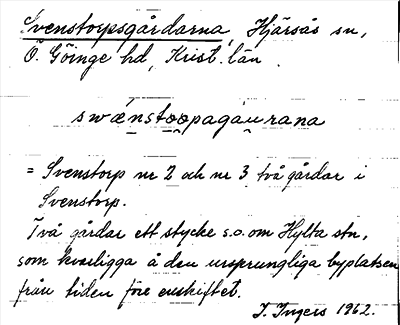 Svenstorpsgårdarna, Hjärsås sn,
Ö. Göinge hd, Krist. län
swænstoopagaurana
= Svenstorp nr 2 och nr 3, två gårdar i
Svenstorp.
Två gårdar ett stycke s.o. om Hylta stn,
som kvarligga å den ursprungliga byplatsen
från tiden före enskiftet.
I. Ingers 1962.